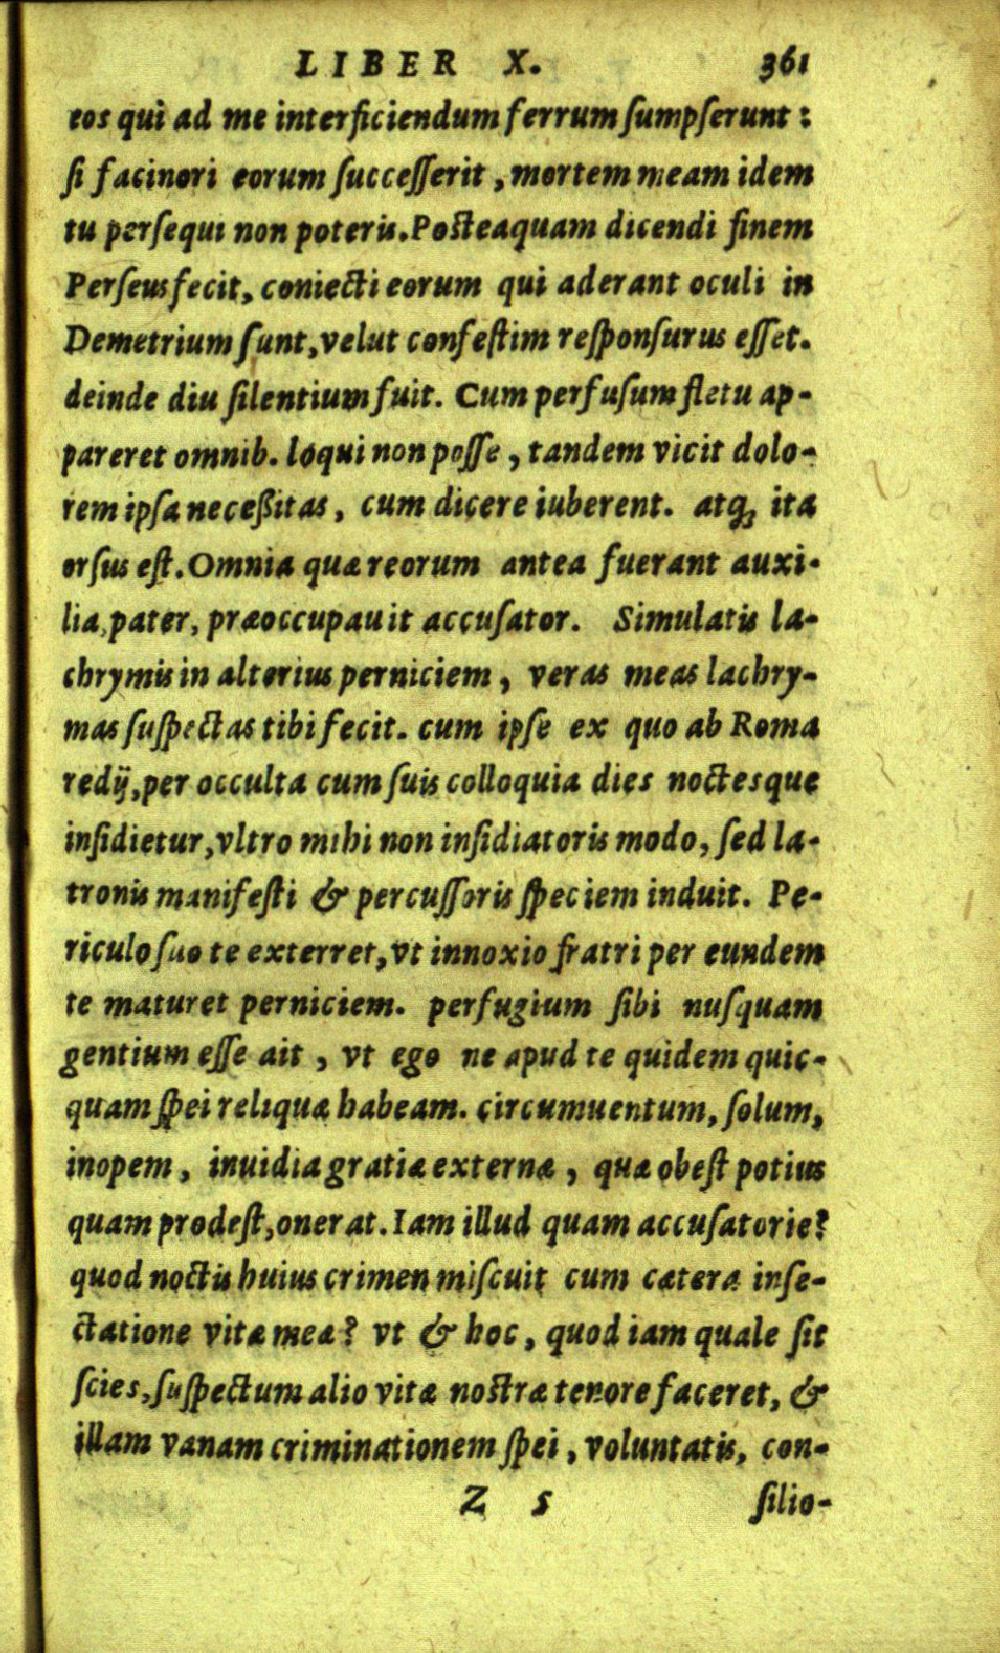 LIBER X. 361
eos qui ad me interficiendum ferrum ſumpſerunt:
ſi facinori eorum ſucceſſerit, mortem meam idem
tu perſequi non poteris. Posteaquam dicendi finem
Perſeus fecit, coniecti eorum qui aderant oculi in
Demetrium ſunt, velut confeſtim reſponſurus eſſet.
deinde diu ſilentium fuit. Cum perfuſum fletu ap-
pareret omnib. loqui non poſſe, tandem vicit dolo-
rem ipſa neceßitas, cum dicere iuberent. atq; ita
orſus eſt. Omnia quæ reorum antea fuerant auxi-
lia, pater, præoccupauit accuſator. Simulatis la-
chrymis in alterius perniciem, veras meas lachry-
mas ſuſpectas tibi fecit. cum ipſe ex quo ab Roma
redij, per occulta cum ſuis colloquia dies noctesque
inſidietur, vltro mihi non inſidiatoris modo, ſed la-
tronis manifeſti & percuſſoris ſpeciem induit. Pe-
riculo ſuo te exterret, vt innoxio fratri per eundem
te maturet perniciem. perfugium ſibi nuſquam
gentium eſſe ait, vt ego ne apud te quidem quic-
quam ſpei reliquæ habeam. circumuentum, ſolum,
inopem, inuidia gratiæ externæ, quæ obeſt potius
quam prodeſt, onerat. Iam illud quam accuſatorie?
quod noctis huius crimen miſcuit cum cætera inſe-
ctatione vitæ meæ? vt & hoc, quod iam quale ſit
ſcies, ſuſpectum alio vitæ nostræ tenore faceret, &
illam vanam criminationem ſpei, voluntatis, con-
Z 5 ſilio-